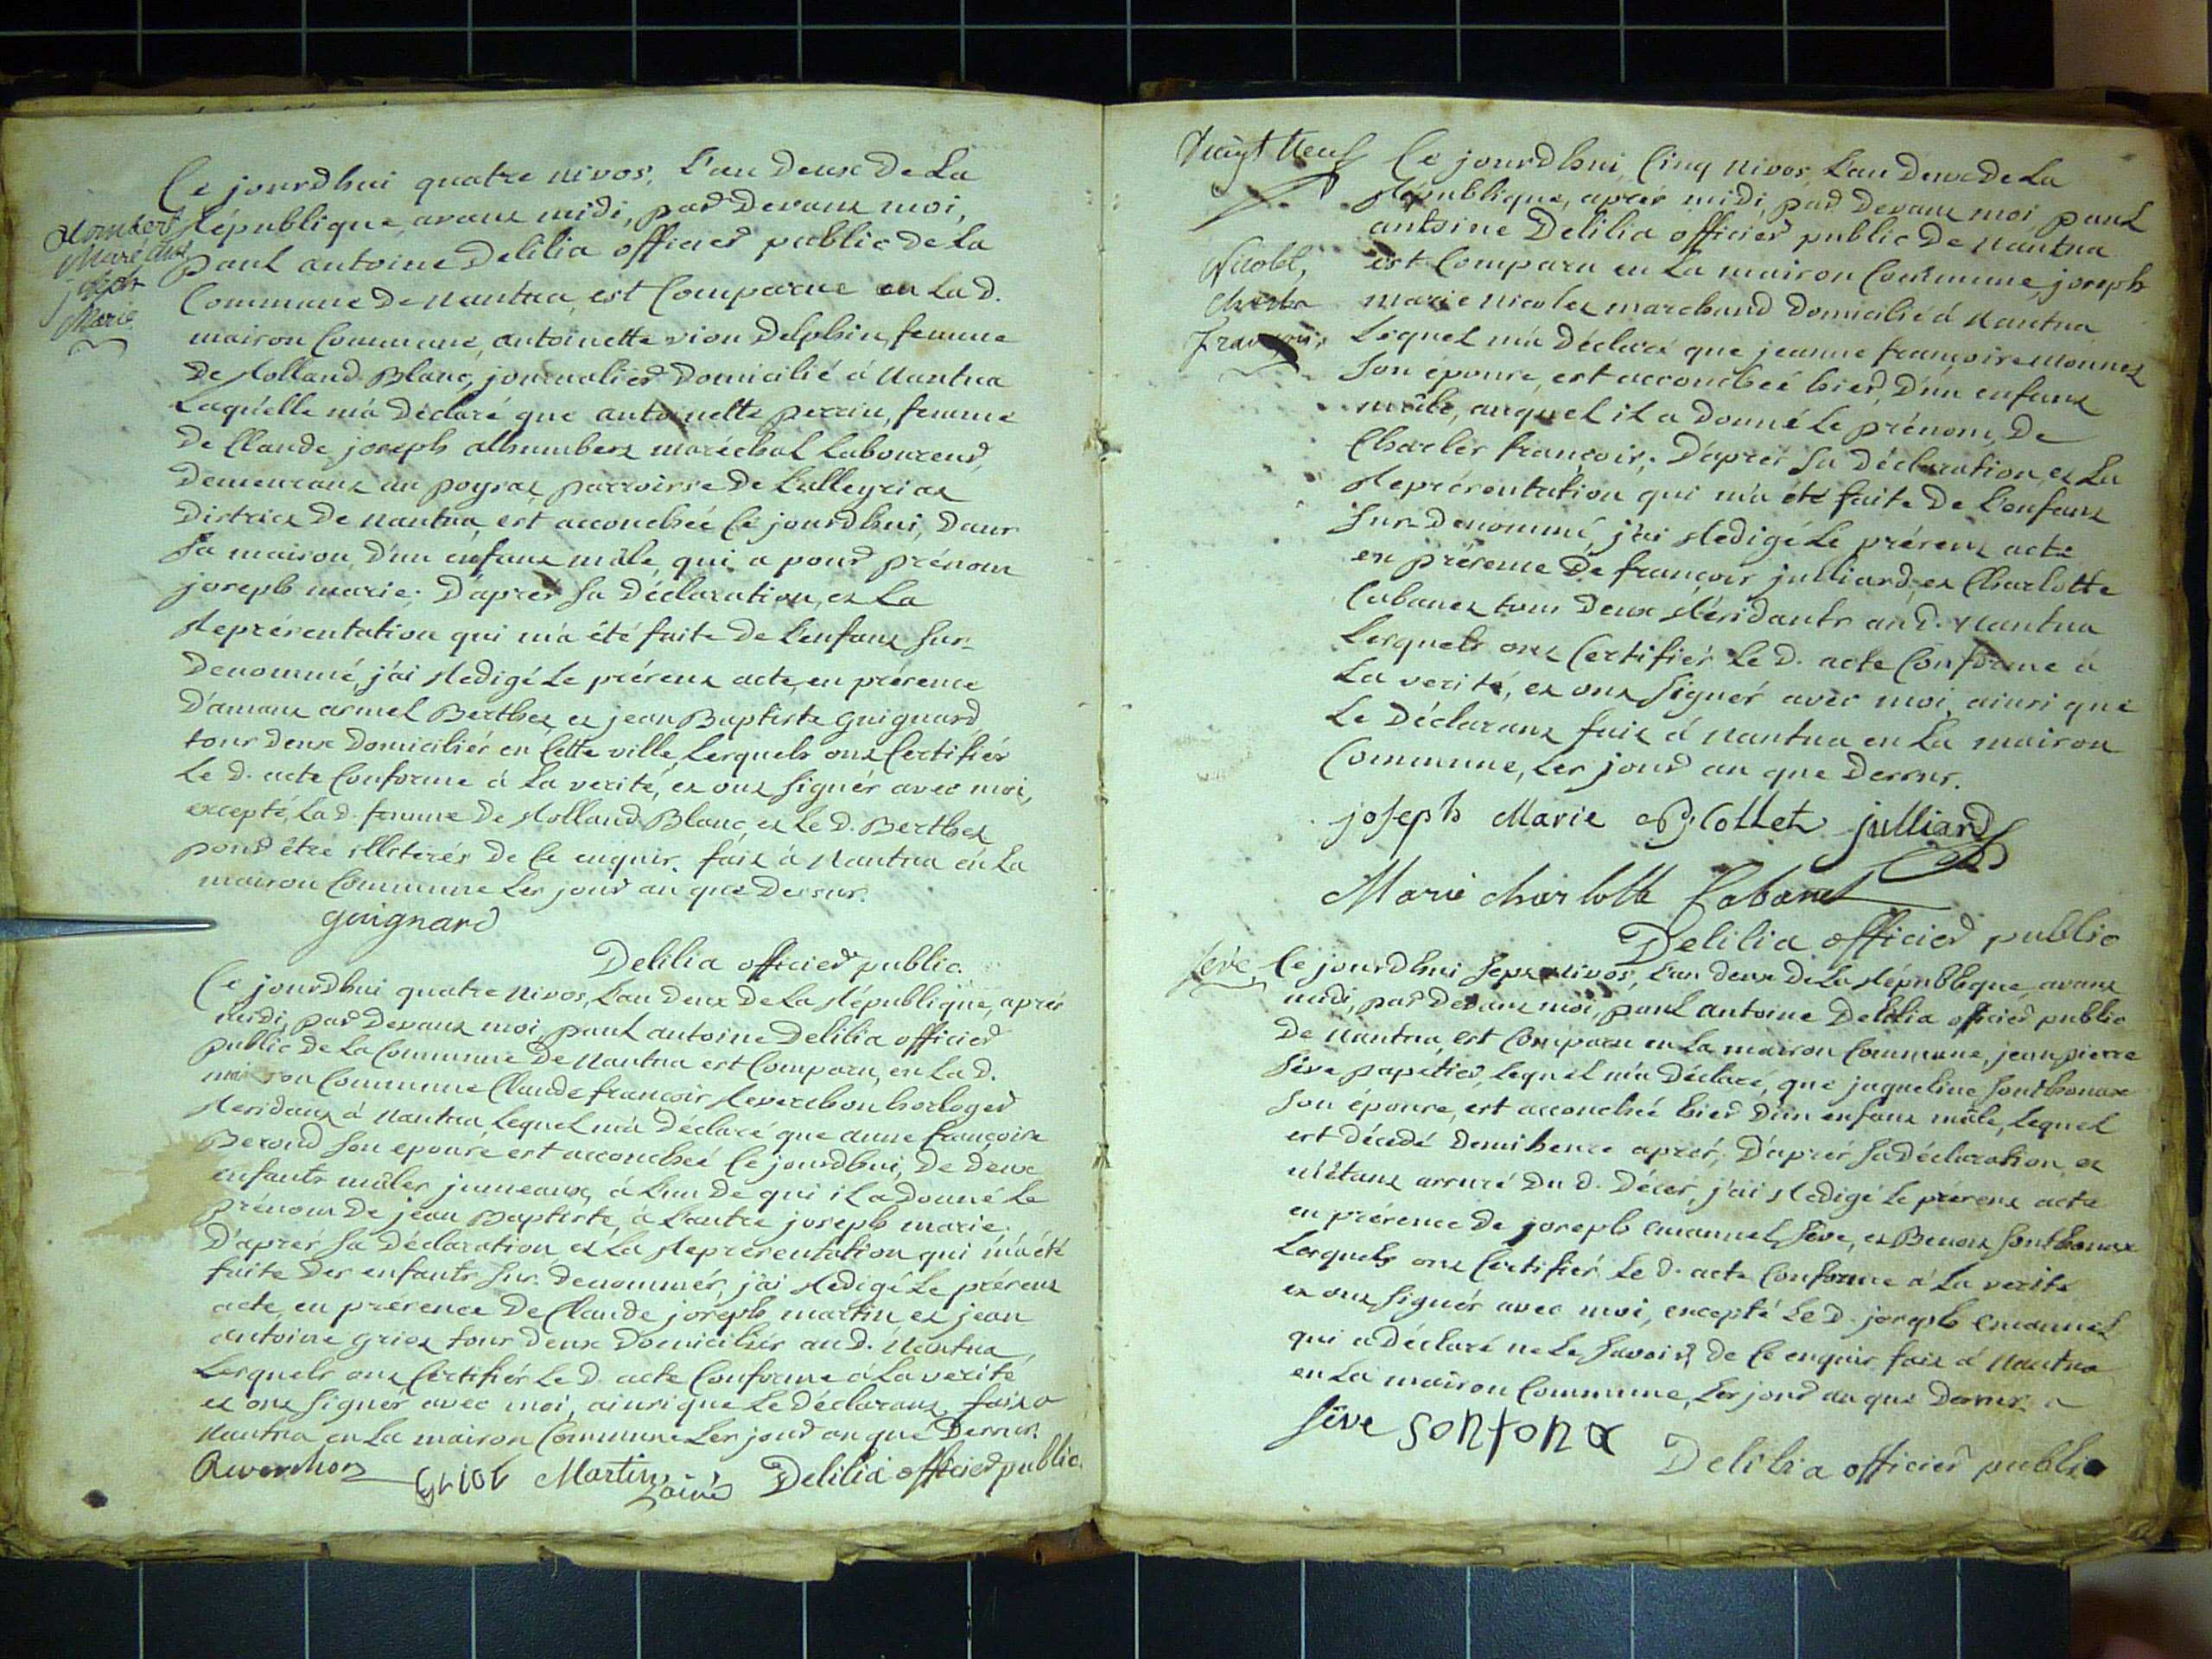 Ce jourdhui quatre nivos, L'an deux de La
République, avant midi, par devant moi,
paul antoine Delilia officier public de La
Commune de Nantua, est Comparue en La d.
maison Commune, antoinette vion Delphin, femme
de Rolland Blanc, journalier Domicilié á Nantua
Laquelle m'a Déclaré que antoinette perrin, femme
de Claude joseph alhumbert maréchal Laboureur,
Demeurant au poysat, parroisse de Lalleyriat
District de Nantua, est accouchée Ce jourdhui, dans
sa maison, d'un enfant mâle, qui a pour prénom
joseph marie; D'aprés sa Déclaration, et La
Représentation qui m'a été faite de L'enfant sus-
denommé, j'ai Redigé Le présent acte, en présence
D'amant armel Berthet, et jean Baptiste Guignard,
tous deux Domiciliés en Cette ville, Lesquels ont Certifiés
Le d. acte Conforme á La verité, et ont signés avec moi,
excepté, La d. femme de Rolland Blanc, et Le d. Berthet
pour être illiterés de Ce enquis. fait á Nantua en La
maison Commune Les jour an que dessus.
guignard
Delilia officier public.
joseph
Marie
Ce jourdhui quatre nivos, L'an deux de La République, aprés
midi, par devant moi, paul antoine Delilia officier
public de La Commune de Nantua est Comparu, en La d.
maison Commune Claude françois Reverchon horloger
Résidant á Nantua, Lequel m'a Déclaré que anne françoise
Beroud son epouse est accouchée Ce jourdhui, de deux
enfants mâles jumeaux, á L'un de qui il a donné Le
prénom de jean Baptiste, á L'autre joseph marie.
D'aprés sa Déclaration et La Représentation qui m'a été
faite des enfants sus denommés, j'ai Redigé Le présent
acte, en présence de Claude joseph martin et jean
antoine griot tous deux Domiciliés au d. Nantua,
Lesquels ont Certifiés Le d. acte Conforme á La verité
et ont signés avec moi, ainsi que Le Déclarant. fait a
Nantua en La maison Commune Les jour an que Dessus.
Reverchon Griot Martin L'ainé Delilia officier public.
Vingt Neuf
Nicolet,
Charles
François
Ce jourdhui, Cinq nivos, L'an deux de La
République, aprés midi, par devant moi, paul
antoine Delilia officier public de Nantua
est Comparu en La maison Commune, joseph
marie nicolet marchand Domicilié á Nantua
Lequel m'a Déclaré que jeanne françoise Monnet
son épouse, est accouchée hier, D'un enfant
mâle, auquel il a donné Le prénom, de
Charles françois; D'aprés sa Déclaration, et La
Représentation qui m'a été faite de L'enfant
sus-denommé, j'ai Redigé Le présent acte
en présence de françois julliard, et Charlotte
Cabanet tous deux Résidants au d. Nantua
Lesquels ont Certifiés Le d. acte Conforme á
La verité, et ont signés avec moi, ainsi que
Le Déclarant fait á Nantua en La maison
Commune, Les jour an que Dessus.
joseph Marie Nicollet julliard
Marie charlotte Cabanet
Delilia officier public
séve
Ce jourdhui sept nivos, L'an deux de La République, avant
midi, par devant moi, paul antoine Delilia officier public
de Nantua, est Comparu en La maison Commune, jean pierre
séve papetier, Lequel m'a Déclaré, que jaqueline sonthonax
son épouse, est accouchée hier d'un enfant mâle, Lequel
est décédé Demi heure aprés; D'aprés sa Déclaration, et
m'étant assuré du d. Décés, j'ai Redigé Le présent acte
en présence de joseph emanuel séve, et Benoit sonthonax
Lesquels ont Certifiés Le d. acte Conforme á La verité
et ont signés avec moi, excepté Le d. joseph emanuel
qui a déclaré ne Le savoir, de Ce enquis fait á Nantua
en La maison Commune, Les jour an que dessus
séve sontona
Delilia officier public